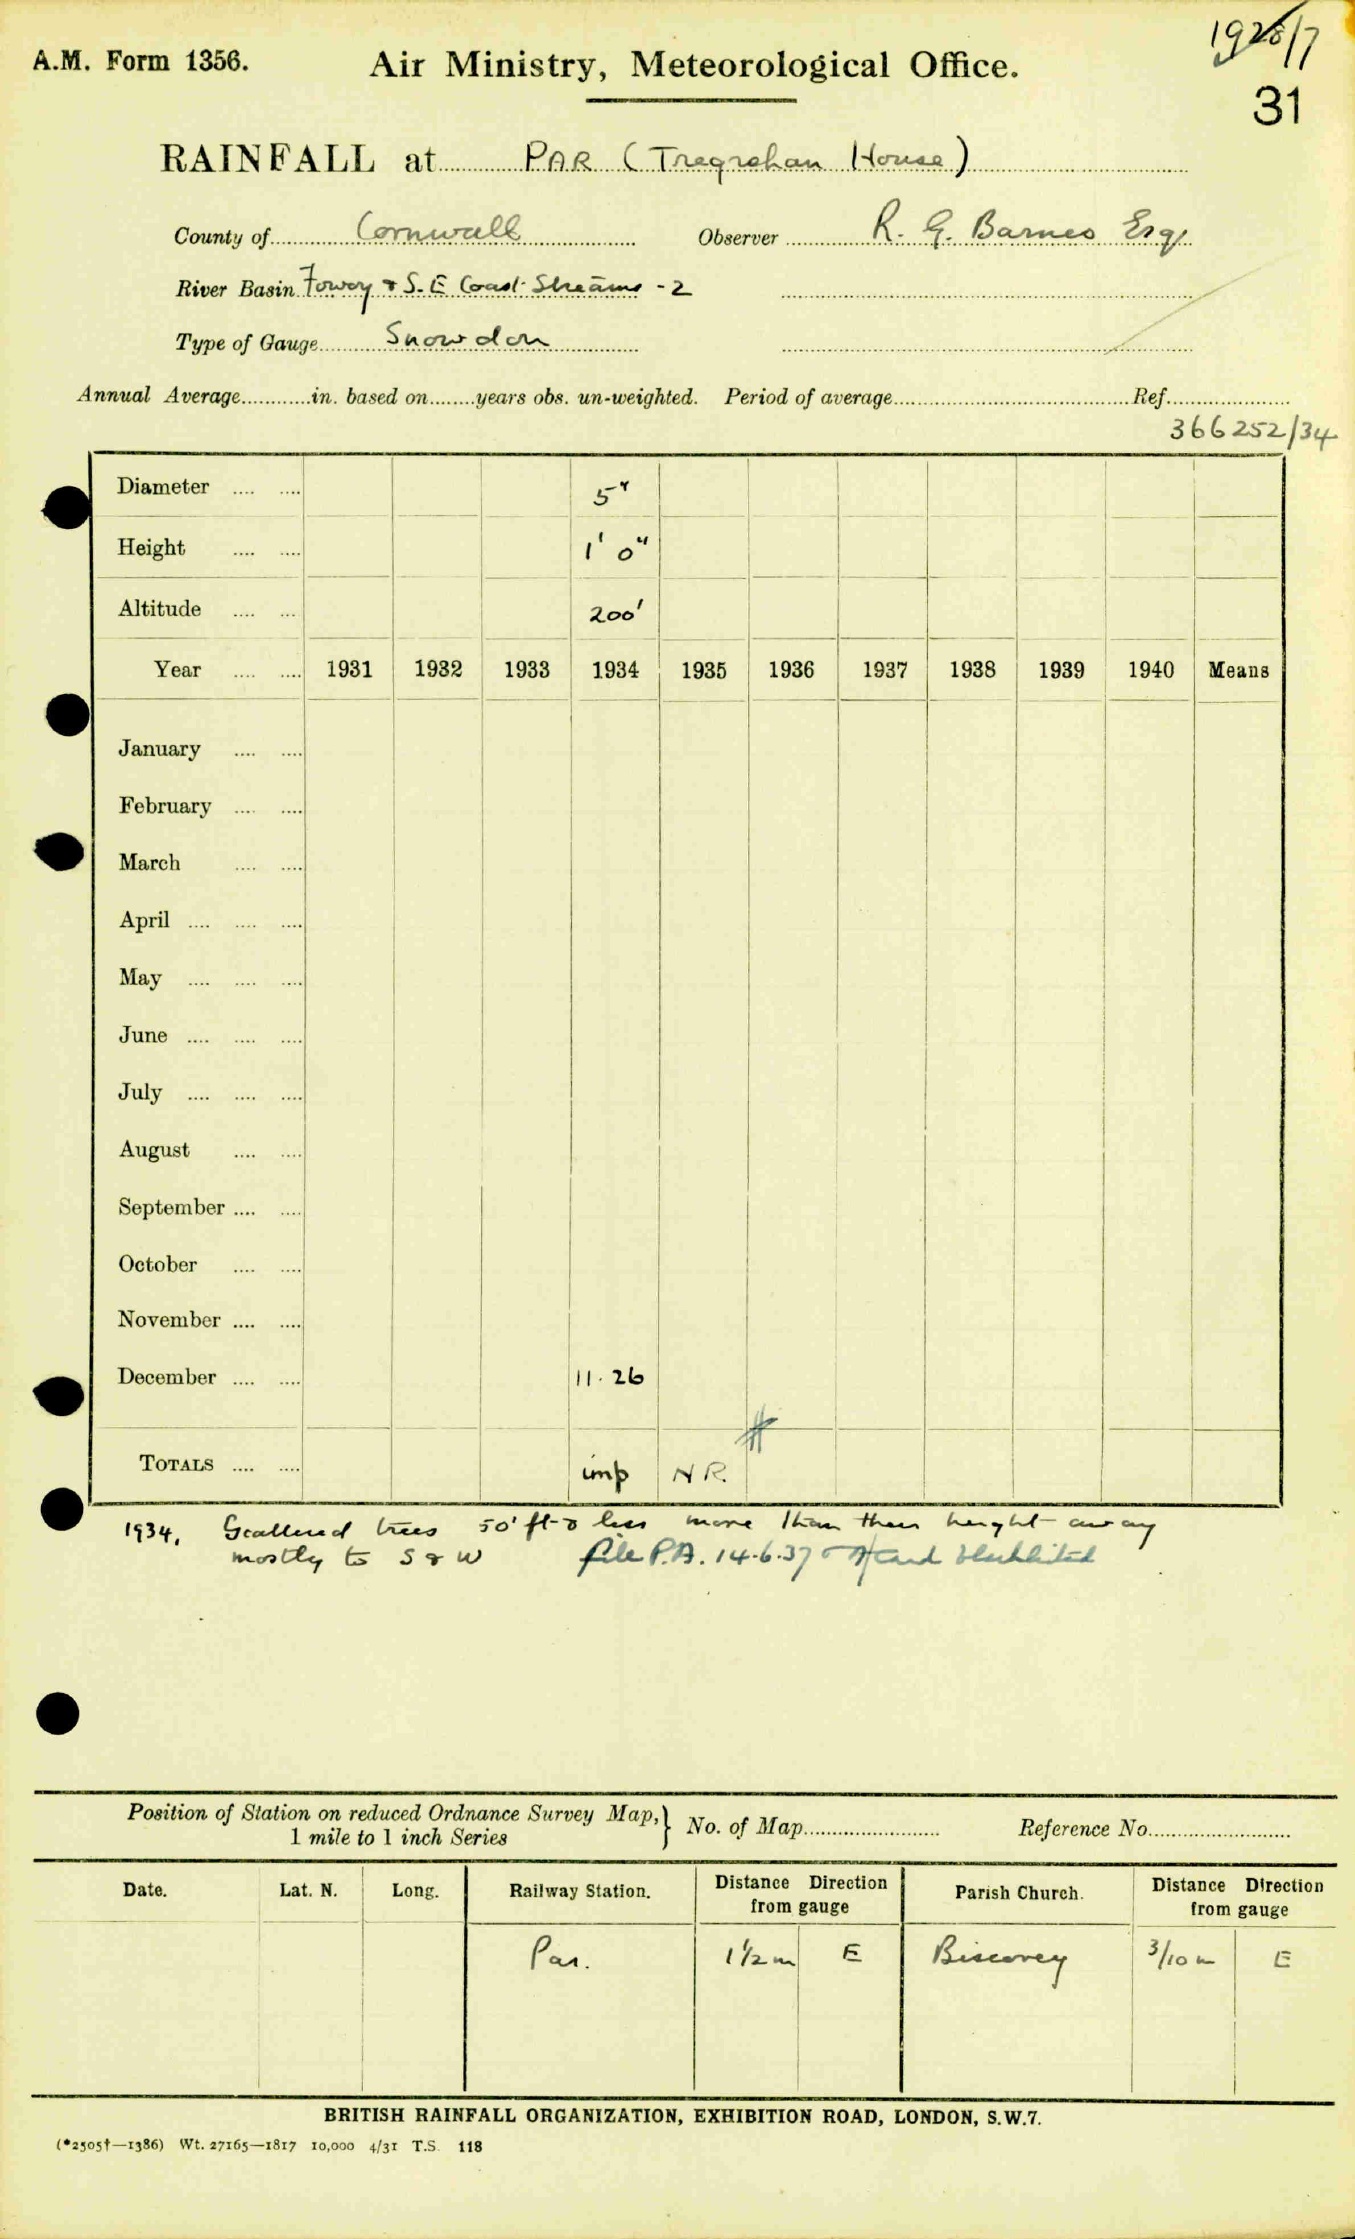 A.M. Form 1356.
Air Ministry, Meteorological Office.
31
RAINFALL at PAR (Tregrehan House)
County of Cornwall Observer R. G. Barnes Esq.
River Basin Fowey & S. E Coast Streams - 2
Type of Gauge Snowdon
Annual Average............in. based on........years obs. un-weighted. Period of average........................Ref...............
366252/34
Diameter .... .... 5"
Height .... .... 1' 0"
Altitude .... .... 200'
Year .... .... 1931 1932 1933 1934 1935 1936 1937 1938 1939 1940 Means
January .... ....
February .... ....
March .... ....
April .... .... ....
May .... .... ....
June .... .... ....
July .... .... ....
August .... ....
September .... ....
October .... ....
November .... ....
December .... .... 11.26
TOTALS .... .... imp N R.
1934. Scattered trees 50' ft & less more than their height away
mostly to S & W file P.A. 14.6.37 card
Position of Station on reduced Ordnance Survey Map,} No. of Map............ Reference No............
1 mile to 1 inch Series
Date. Lat. N. Long. Railway Station. Distance Direction from gauge Parish Church. Distance Direction from gauge
Par. 1½ m E Biscovey 3/10 m E
BRITISH RAINFALL ORGANIZATION, EXHIBITION ROAD, LONDON, S.W.7.
(*2505†—1386) Wt. 27165—1817 10,000 4/31 T.S. 118